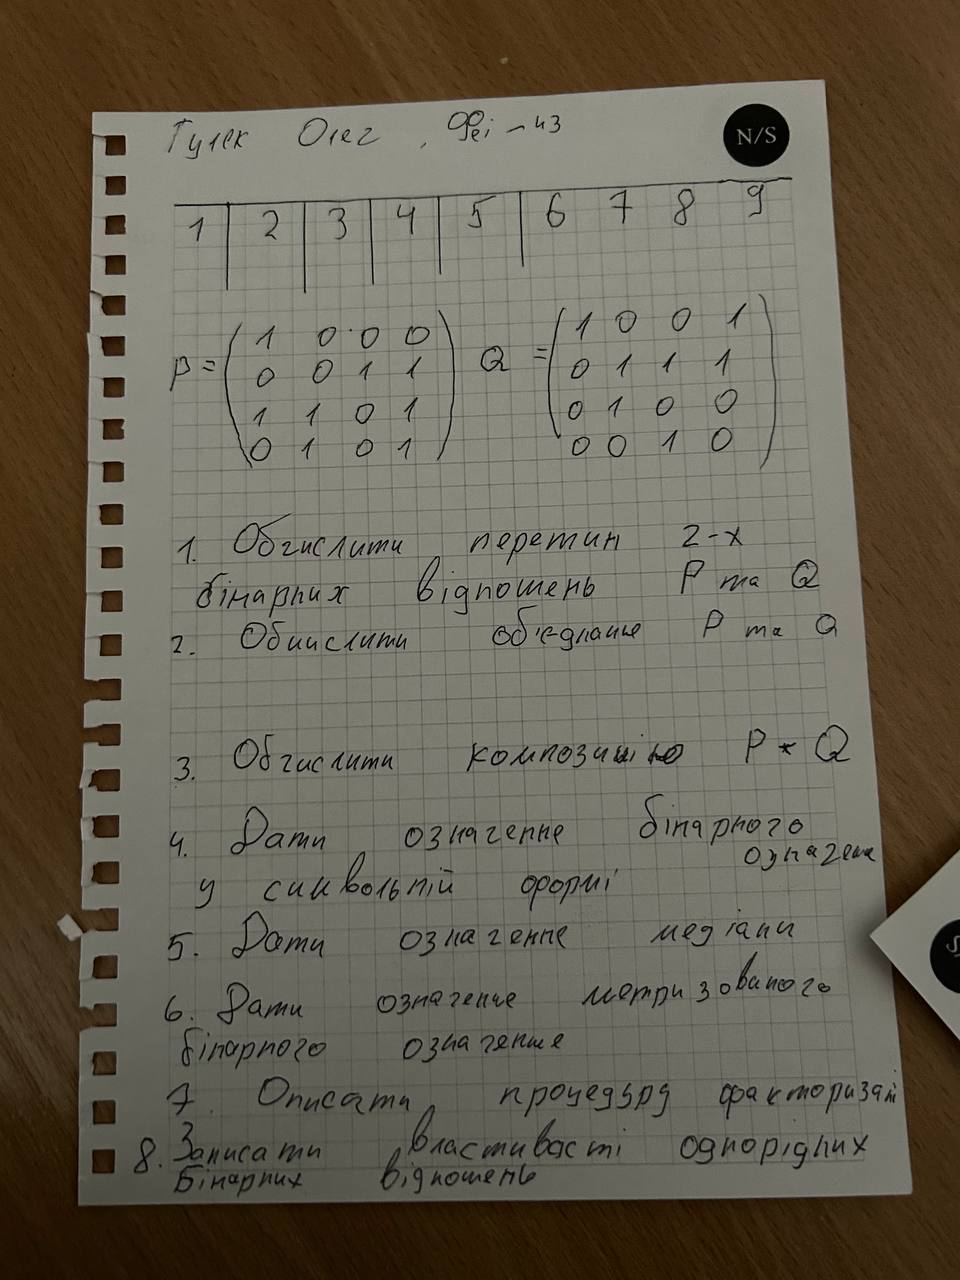 Гулек Олег, Феі-43
N/S
1 2 3 4 5 6 7 8 9
P = ( 1 0 0 0 ) Q = ( 1 0 0 1 )
0 0 1 1 0 1 1 1
1 1 0 1 0 1 0 0
0 1 0 1 0 0 1 0
1. Обчислити перетин 2-х
бінарних відношень P та Q
2. Обчислити об'єднання P та Q
3. Обчислити композицію P * Q
4. Дати означення бінарного
означення
у символьній формі
5. Дати означення медіани
6. Дати означення метризованого
бінарного означення
7. Описати процедуру факторизації
8. Записати властивості однорідних
бінарних відношень